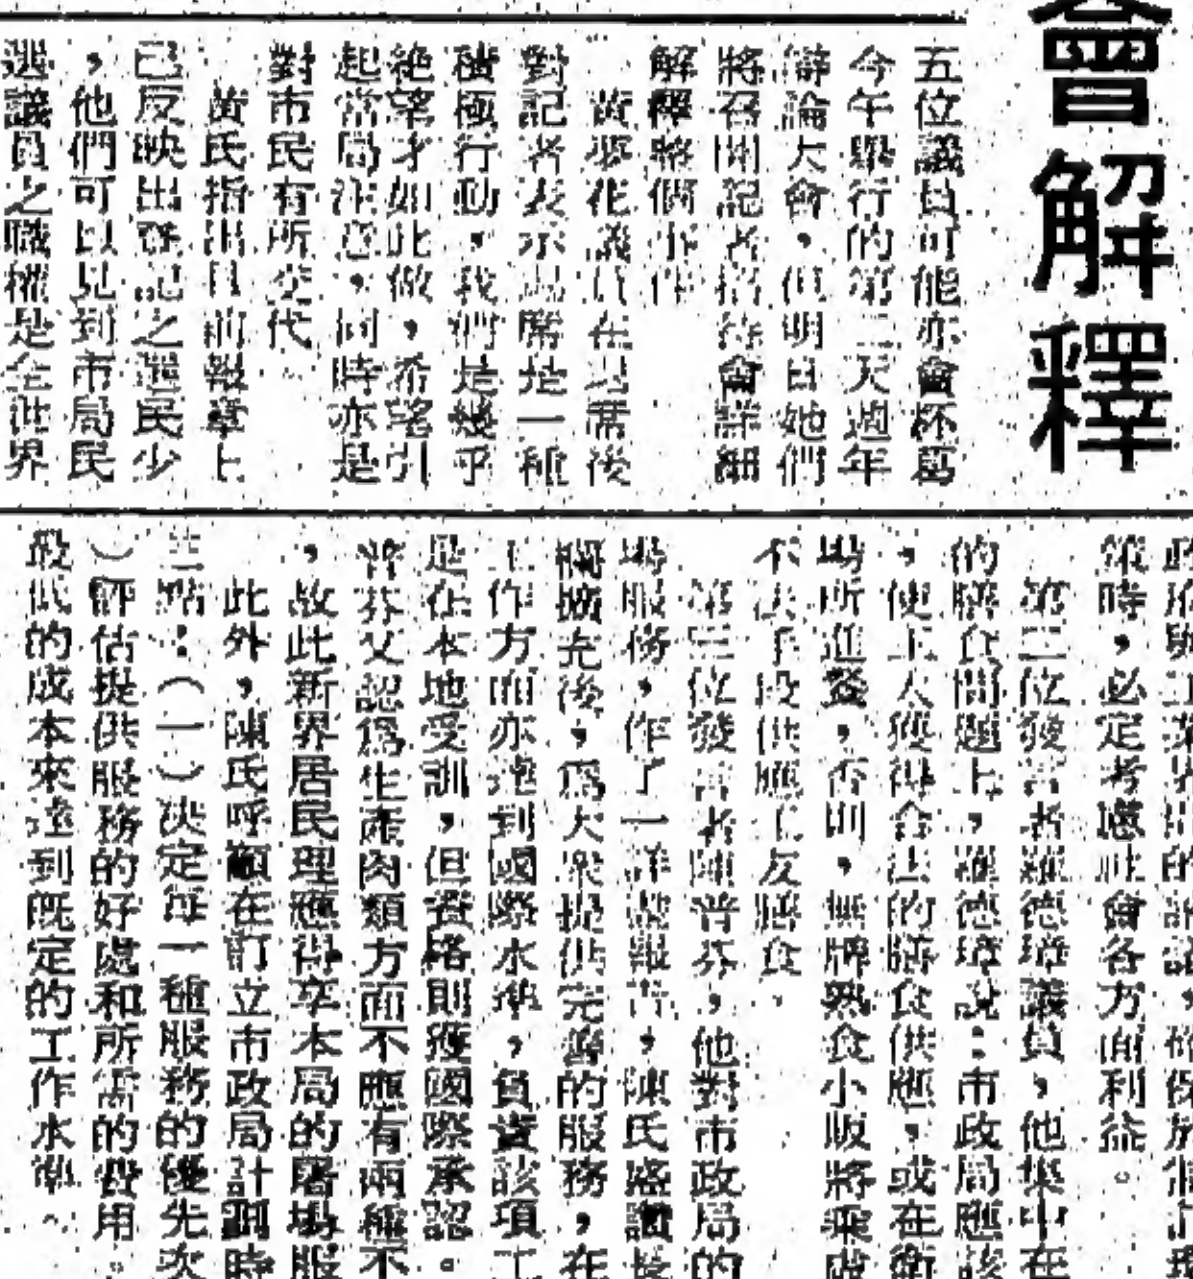 會解釋
五位議員可能亦會杯葛
今午舉行的第二天週年
辯論大會,但明日她們
將召開記者招待會詳細
解釋整個事件
黃夢花議員在退席後
對記者表示退席是一種
積極行動,我們是幾乎
絕望才如此做,希望引
起當局注意,同時亦是
對市民有所交代。
黃氏指出目前報章上
已反映出登記之選民少
,他們可以見到市局民
選議員之職權是全世界
策時,必定考慮社會各方面利益。
第二位發言者羅德璋議員,他集中在
的膳食問題上,羅德璋說:市政局應該
,使工人獲得合法的膳食供應,或在衛
場所進餐,否則,無牌熟食小販將乘
不法手段供應工友膳食,
第三位發言者陳普芬,他對市政局的
場服務,作了一詳盡報告,陳氏盛讚長
擴充後,爲大衆提供完善的服務,在
工作方面亦達到國際水準,負責該項工
是在本地受訓,但資格則獲國際承認。
普芬又認爲生產肉類方面不應有兩種不
,故此新界居民理應得享本局的屠場服
此外,陳氏呼籲在訂立市政局計劃時
三點:(一)決定每一種服務的優先次
)評估提供服務的好處和所需的費用。
最低的成本來達到既定的工作水準。